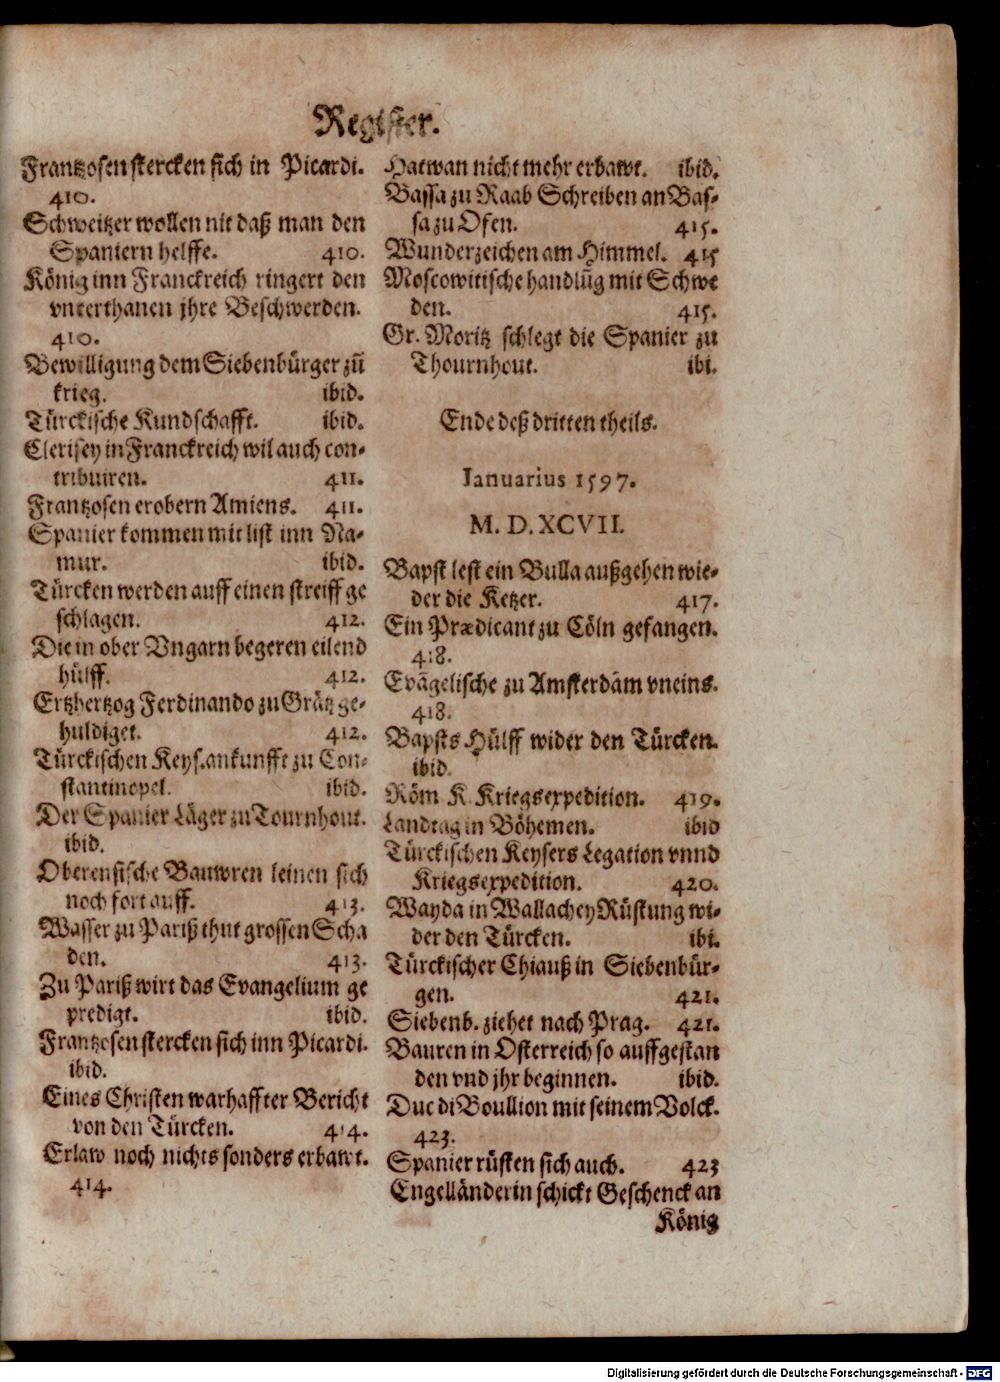 Register.
Frantzosen stercken sich in Picardi.
410.
Schweitzer wollen nit daß man den
Spaniern helffe. 410.
König inn Franckreich ringert den
vnterthanen jhre Beschwerden.
410.
Bewilligung dem Siebenbürger zũ
krieg. ibid.
Türckische Kundschafft. ibid.
Clerisey in Franckreich wil auch con-
tribuiren. 411.
Frantzosen erobern Amiens. 411.
Spanier kommen mit list inn Na-
mur. ibid.
Türcken werden auff einen streiff ge
schlagen. 412.
Die in ober Vngarn begeren eilend
hülff. 412.
Ertzhertzog Ferdinando zu Grätz ge-
huldiget. 412.
Türckischen Keys. ankunfft zu Con-
stantinopel. ibid.
Der Spanier Läger zu Tournhout.
ibid.
Oberensische Bauwren leinen sich
noch fort auff. 413.
Wasser zu Pariß thut grossen Scha
den. 413.
Zu Pariß wirt das Evangelium ge
predigt. ibid.
Frantzosen stercken sich inn Picardi.
ibid.
Eines Christen warhaffter Bericht
von den Türcken. 414.
Erlaw noch nichts sonders erbawt.
414.
Hatwan nicht mehr erbawt. ibid.
Bassa zu Raab Schreiben an Bas-
sa zu Ofen. 415.
Wunderzeichen am Himmel. 415
Moscowitische handlũg mit Schwe
den. 415.
Gr. Moritz schlegt die Spanier zu
Thournhout. ibi.
Ende deß dritten theils.
Ianuarius 1597.
M. D. XCVII.
Bapst lest ein Bulla außgehen wie-
der die Ketzer. 417.
Ein Prædicant zu Cöln gefangen.
418.
Evãgelische zu Amsterdam vneins.
418.
Bapsts Hülff wider den Türcken.
ibid.
Röm K. Kriegsexpedition. 419.
Landtag in Böhemen. ibid
Türckischen Keysers Legation vnnd
Kriegsexpedition. 420.
Wayda in Wallachey Rüstung wi-
der den Türcken. ibi.
Türckischer Chiauß in Siebenbür-
gen. 421.
Siebenb. ziehet nach Prag. 421.
Bauren in Osterreich so auffgestan
den vnd jhr beginnen. ibid.
Duc di Boullion mit seinem Volck.
423.
Spanier rüsten sich auch. 423
Engelländerin schickt Geschenck an
König
Digitalisierung gefördert durch die Deutsche Forschungsgemeinschaft - DFG